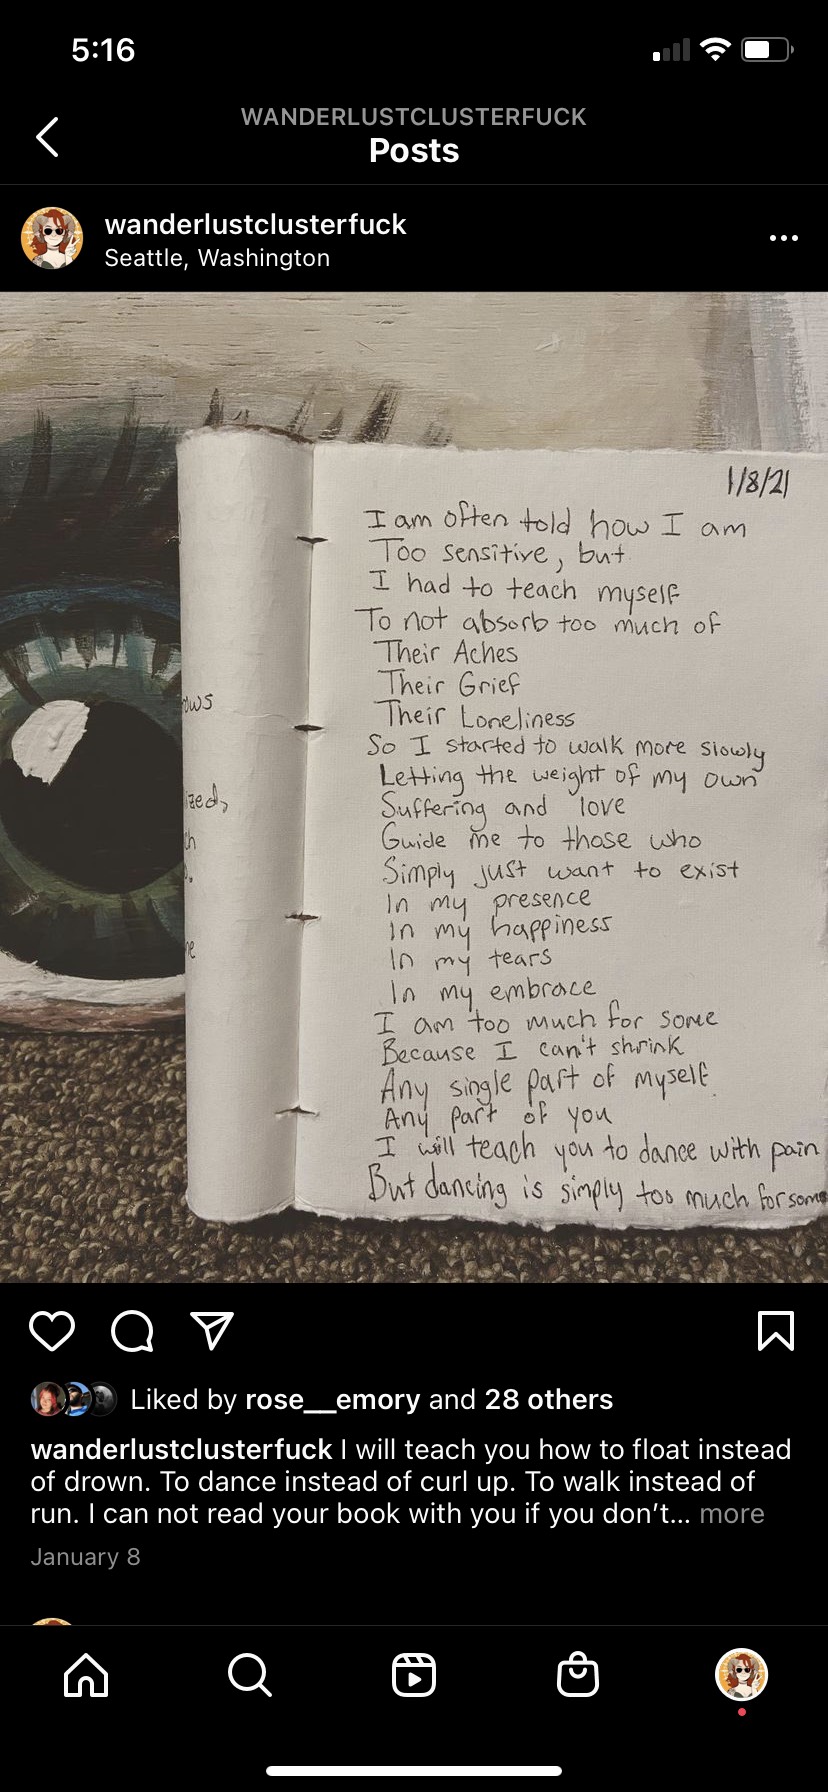 5:16
WANDERLUSTCLUSTERFUCK
Posts
wanderlustclusterfuck
Seattle, Washington
1/8/21
I am often told how I am
Too sensitive, but
I had to teach myself
To not absorb too much of
Their Aches
Their Grief
Their Loneliness
So I started to walk more slowly
Letting the weight of my own
Suffering and love
Guide me to those who
Simply just want to exist
In my presence
In my happiness
In my tears
In my embrace
I am too much for some
Because I can't shrink
Any single part of myself.
Any part of you
I will teach you to dance with pain
But dancing is simply too much for some
Liked by rose__emory and 28 others
wanderlustclusterfuck I will teach you how to float instead
of drown. To dance instead of curl up. To walk instead of
run. I can not read your book with you if you don't... more
January 8